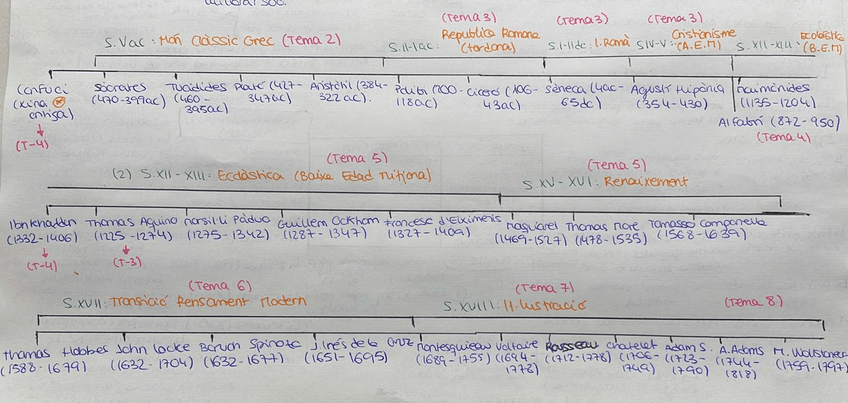 S. V ac : Món Clàssic Grec (Tema 2)
(Tema 3)
S. II-I ac:
República Romana
(tardana)
(Tema 3)
S. I-II dc: I. Romà
(Tema 3)
SIV-V:
Cristianisme
(A.E.M)
S. XII-XIII:
Ecolàstica
(B.E.M)
Confuci
(xina
antiga)
(T-4)
Sócrates
(470-399ac)
Tucídides
(460-
395ac)
Plató (427-
347ac)
Aristòtil (384-
322 ac).
Polibi (200-
118ac)
Ciceró (106-
43ac)
Sèneca (4ac-
65dc)
Agustí Hipònia
(354-430)
Maimónides
(1135-1204)
Al Fabrí (872-950)
(Tema 4)
(Tema 5)
(2) S.XII-XIII: Ecolàstica (Baixa Edad Mitjana)
(Tema 5)
S. XV-XVI: Renaixement
Ibn Khaldun
(1332-1406)
(T-4)
Thomas Aquino
(1225-1274)
(T-3)
Marsili Pàdua
(1275-1342)
Guillem Ockham
(1287-1347)
Francesc d'Eiximenis
(1327-1409)
Maquiavel
(1469-1527)
Thomas More
(1478-1535)
Tomasso Campanella
(1568-1639)
(Tema 6)
S.XVII: Transició Pensament Modern
(Tema 7)
S. XVIII: Il·lustració
(Tema 8)
Thomas Hobbes
(1588-1679)
John Locke
(1632-1704)
Baruch Spinoza
(1632-1677)
J. Inés de la Cruz
(1651-1695)
Montesquieau
(1689-1755)
Voltaire
(1694-
1778)
Rousseau
(1712-1778)
Chatelet
(1706-
1749)
Adam S.
(1723-
1790)
A. Adams
(1744-
1818)
M. Wollstonec
(1759-1797)